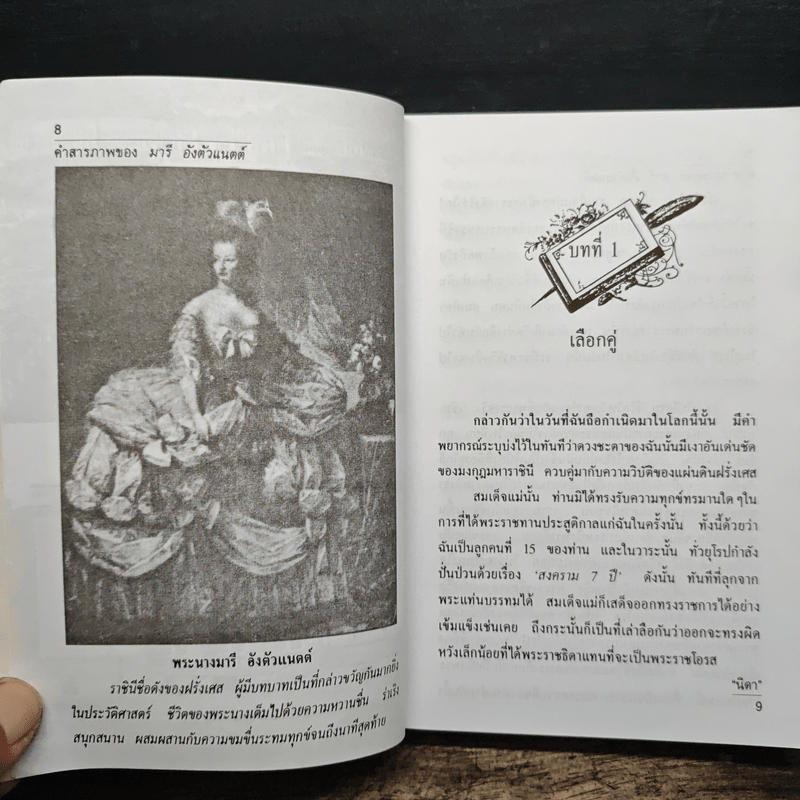 8
คำสารภาพของ มารี อังตัวแนตต์
พระนางมารี อังตัวแนตต์
ราชินีชื่อดังของฝรั่งเศส ผู้มีบทบาทเป็นที่กล่าวขวัญกันมากยิ่ง
ในประวัติศาสตร์ ชีวิตของพระนางเต็มไปด้วยความหวานชื่น ร่าเริง
สนุกสนาน ผสมผสานกับความขมขื่นระทมทุกข์จนถึงนาทีสุดท้าย
บทที่ 1
เลือกคู่
กล่าวกันว่าในวันที่ฉันถือกำเนิดมาในโลกนี้นั้น มีคำ
พยากรณ์ระบุบ่งไว้ในทันทีว่าดวงชะตาของฉันนั้นมีเงาอันเด่นชัด
ของมงกุฎมหาราชินี ควบคู่มากับความวิบัติของแผ่นดินฝรั่งเศส
สมเด็จแม่นั้น ท่านมิได้ทรงรับความทุกข์ทรมานใดๆใน
การที่ได้พระราชทานประสูติกาลแก่ฉันในครั้งนั้น ทั้งนี้ด้วยว่า
ฉันเป็นลูกคนที่ 15 ของท่าน และในวาระนั้น ทั่วยุโรปกำลัง
ปั่นป่วนด้วยเรื่อง 'สงคราม 7 ปี' ดังนั้น ทันทีที่ลุกจาก
พระแท่นบรรทมได้ สมเด็จแม่ก็เสด็จออกทรงราชการได้อย่าง
เข้มแข็งเช่นเคย ถึงกระนั้นก็เป็นที่เล่าลือกันว่าออกจะทรงผิด
หวังเล็กน้อยที่ได้พระราชธิดาแทนที่จะเป็นพระราชโอรส
"นิดา"
9